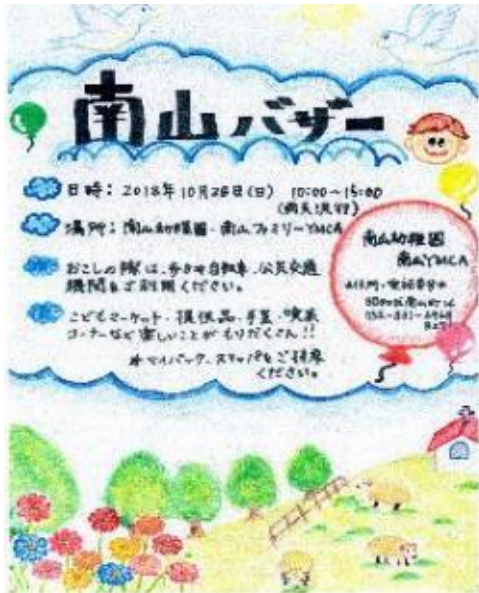 南山バザー
日時：2018年10月28日(日) 10:00～15:00
(雨天決行)
場所：南山幼稚園・南山ファミリーYMCA
おこしの際は、歩きや自転車、公共交通
機関をご利用ください。
こどもマーケット・提供品・手芸・喫茶
コーナーなど楽しいことがもりだくさん!!
※マイバック、スリッパをご持参
ください。
南山幼稚園
南山YMCA
昭和区南山町